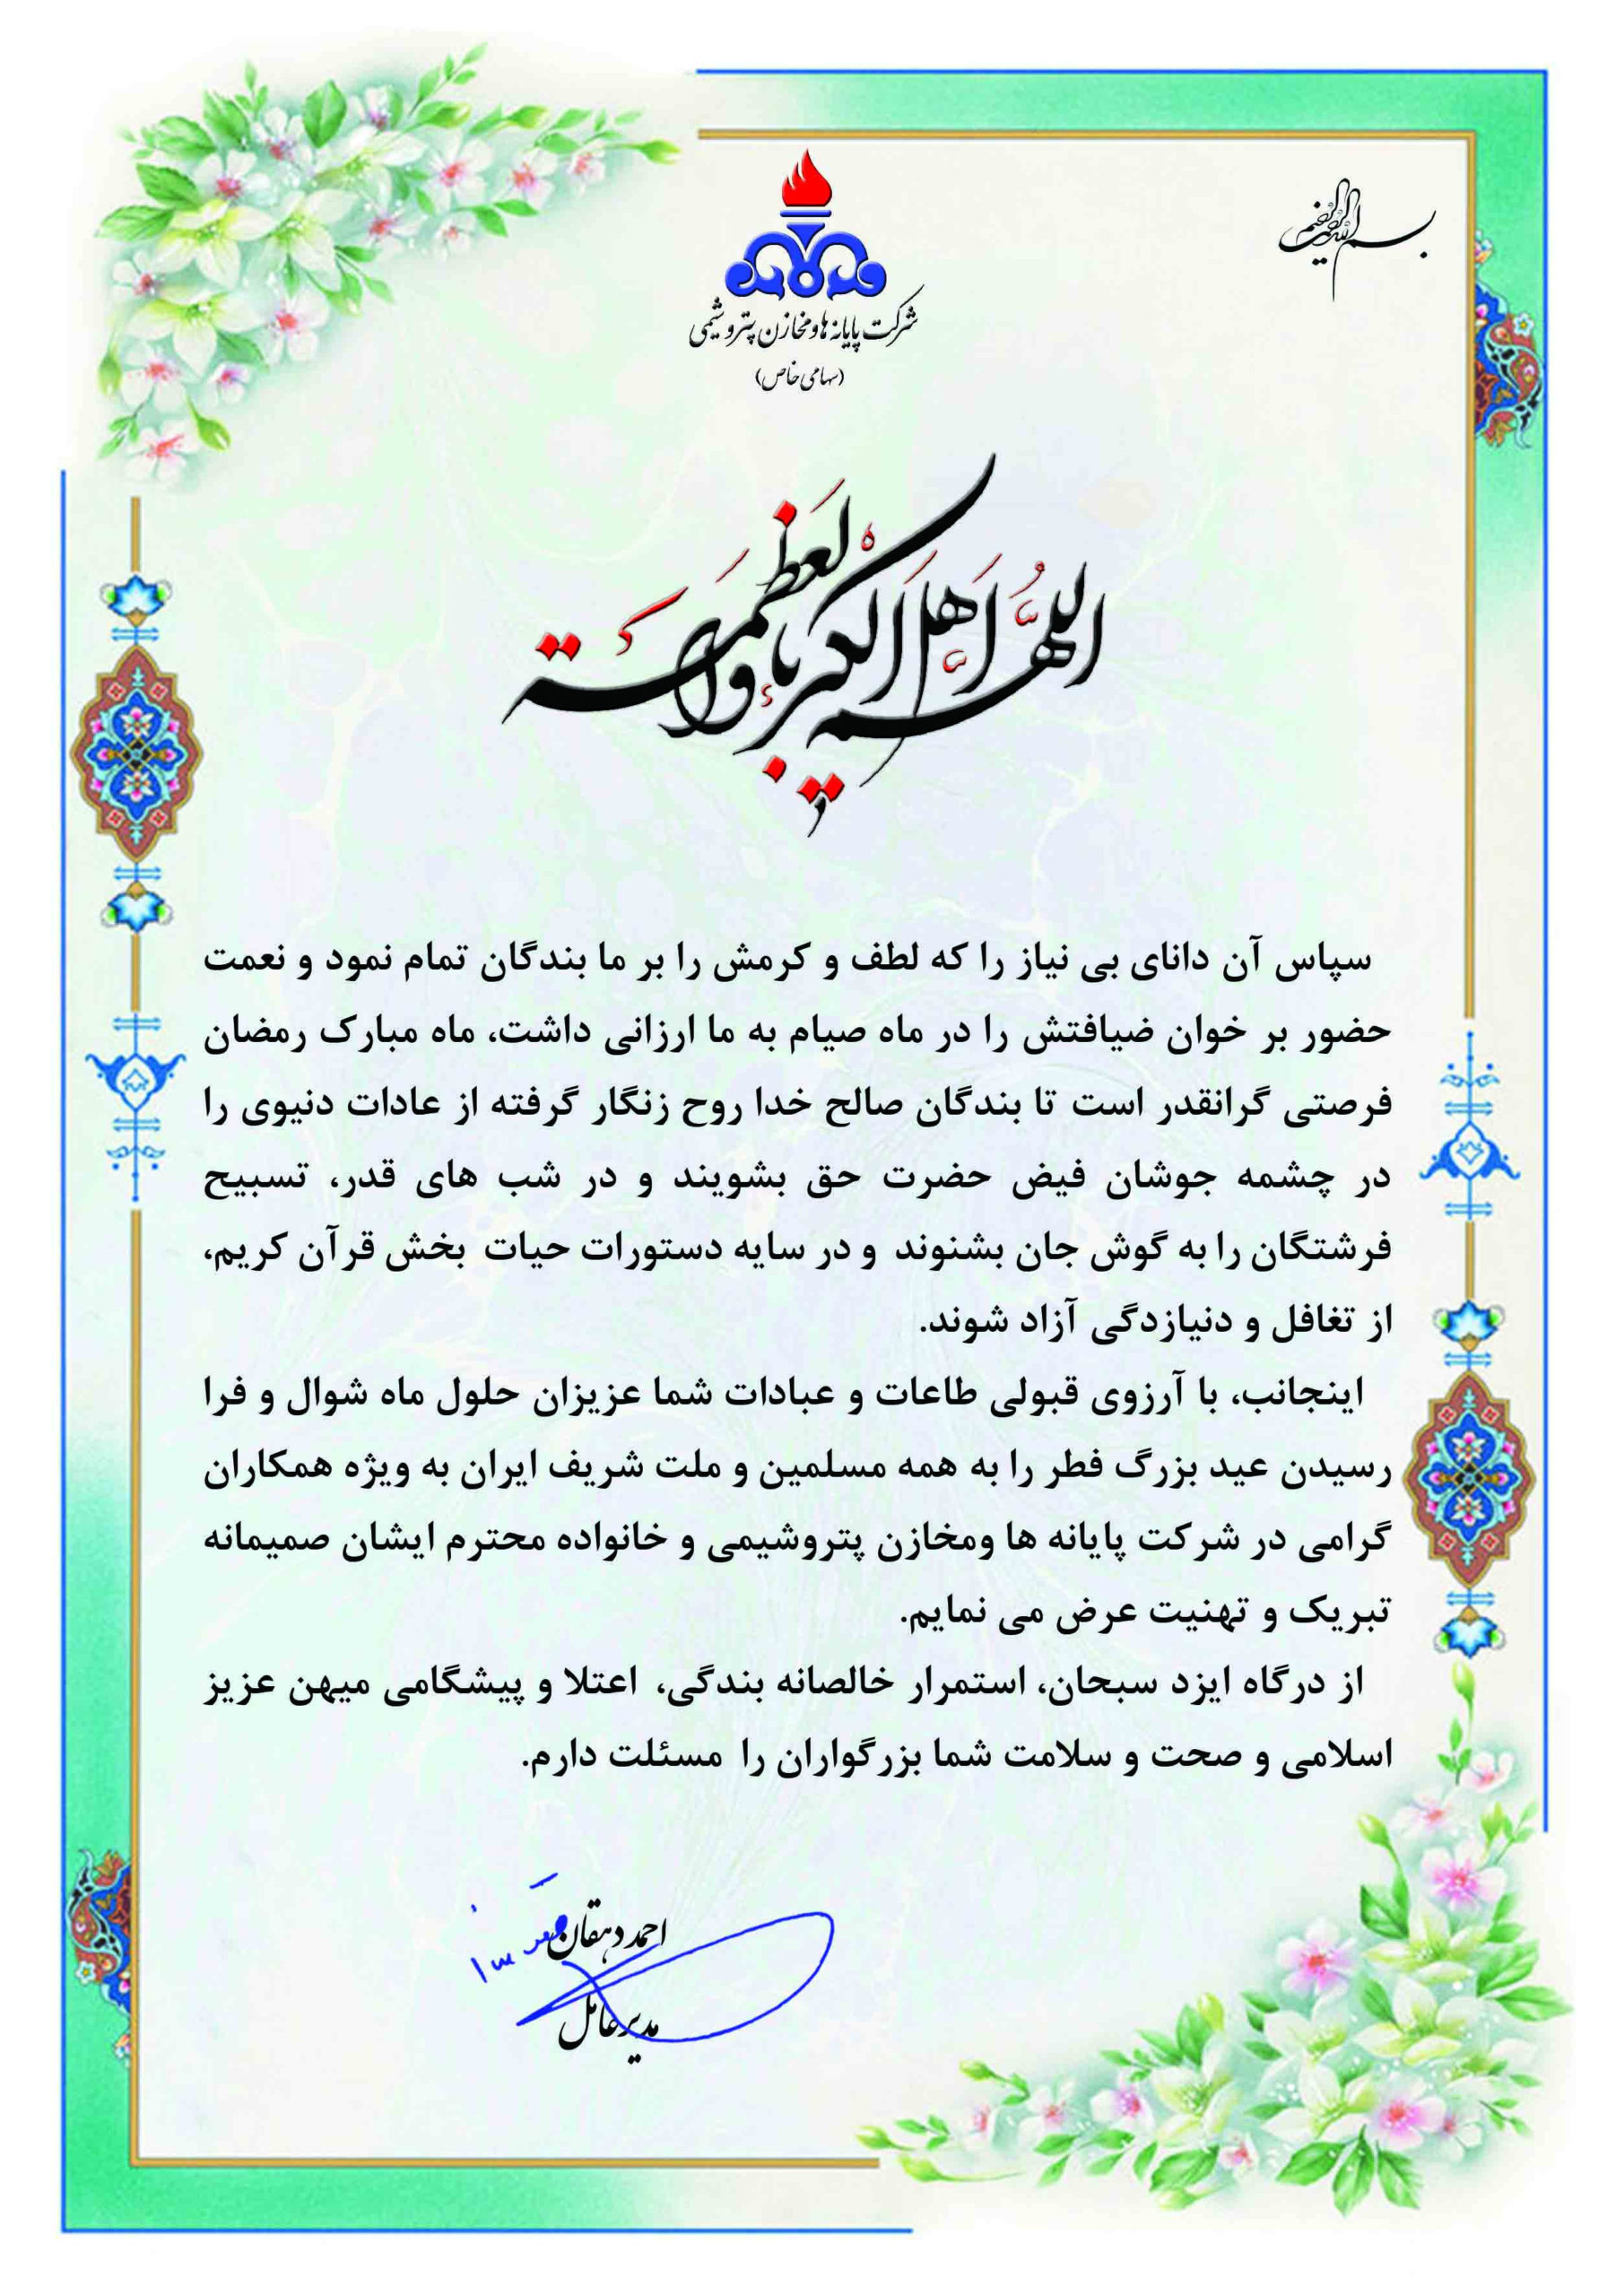 بسم الله الرحمن الرحیم
شرکت پایانه ها و مخازن پتروشیمی
(سهامی خاص)
اللّهُمَّ اَهلَ الکبریاءِ و العَظَمَة
سپاس آن دانای بی نیاز را که لطف و کرمش را بر ما بندگان تمام نمود و نعمت
حضور بر خوان ضیافتش را در ماه صیام به ما ارزانی داشت، ماه مبارک رمضان
فرصتی گرانقدر است تا بندگان صالح خدا روح زنگار گرفته از عادات دنیوی را
در چشمه جوشان فیض حضرت حق بشویند و در شب های قدر، تسبیح
فرشتگان را به گوش جان بشنوند و در سایه دستورات حیات بخش قرآن کریم،
از تغافل و دنیازدگی آزاد شوند.
اینجانب، با آرزوی قبولی طاعات و عبادات شما عزیزان حلول ماه شوال و فرا
رسیدن عید بزرگ فطر را به همه مسلمین و ملت شریف ایران به ویژه همکاران
گرامی در شرکت پایانه ها ومخازن پتروشیمی و خانواده محترم ایشان صمیمانه
تبریک و تهنیت عرض می نمایم.
از درگاه ایزد سبحان، استمرار خالصانه بندگی، اعتلا و پیشگامی میهن عزیز
اسلامی و صحت و سلامت شما بزرگواران را مسئلت دارم.
احمد دهقان
مدیرعامل